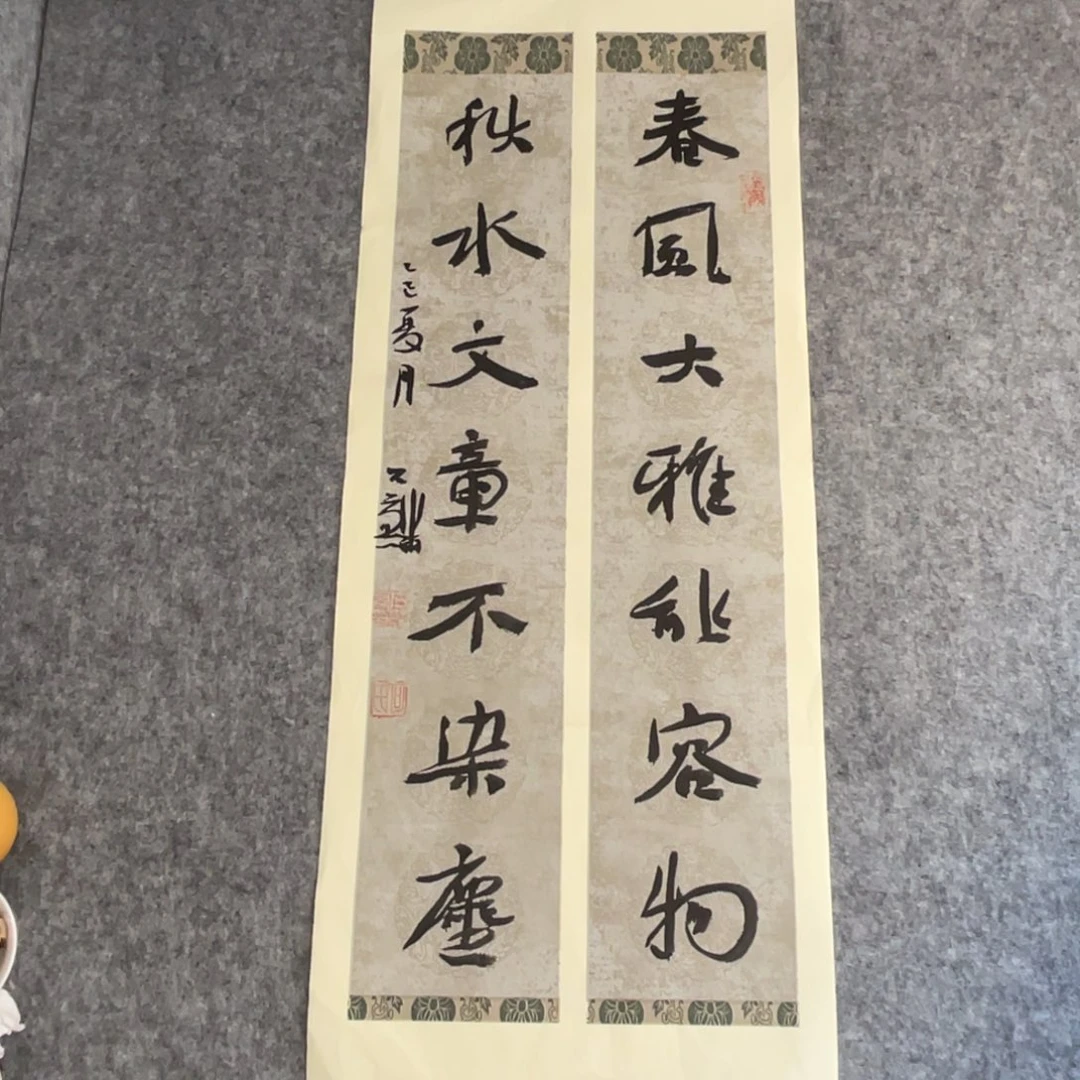 春风大雅能容物
秋水文章不染尘
乙巳夏月